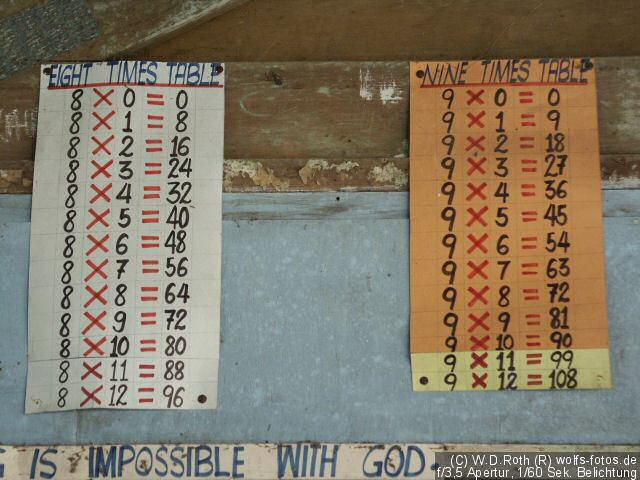 EIGHT TIMES TABLE
8 × 0 = 0
8 × 1 = 8
8 × 2 = 16
8 × 3 = 24
8 × 4 = 32
8 × 5 = 40
8 × 6 = 48
8 × 7 = 56
8 × 8 = 64
8 × 9 = 72
8 × 10 = 80
8 × 11 = 88
8 × 12 = 96
NINE TIMES TABLE
9 × 0 = 0
9 × 1 = 9
9 × 2 = 18
9 × 3 = 27
9 × 4 = 36
9 × 5 = 45
9 × 6 = 54
9 × 7 = 63
9 × 8 = 72
9 × 9 = 81
9 × 10 = 90
9 × 11 = 99
9 × 12 = 108
IS IMPOSSIBLE WITH GOD.
(C) W.D.Roth (R) wolfs-fotos.de
f/3,5 Apertur, 1/60 Sek. Belichtung